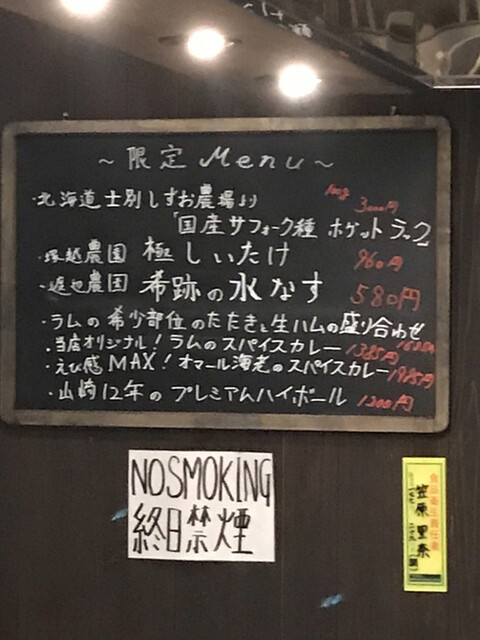 ～限定Menu～
・北海道士別しずお農場より 100g 3000円
「国産サフォーク種 ポケットラック」
・塚越農園 極しいたけ 960円
農園 希跡の水なす 580円
・ラムの希少部位のたたきと生ハムの盛り合わせ
・当店オリジナル！ラムのスパイスカレー 1385円
・えび感MAX！オマール海老のスパイスカレー 1985円
・山崎12年のプレミアムハイボール 1200円
NOSMOKING
終日禁煙
食品衛生責任者
笠原里奈